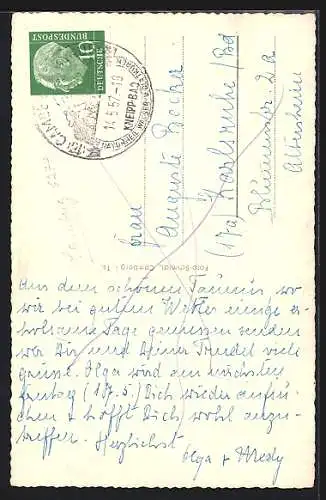 DEUTSCHE
BUNDESPOST
10
CAMBERG
14.5.57-18
KNEIPP-BAD
Frau
Auguste Becker
(17a) Karlsruhe/Bd
Blumenstr. 2a
Altersheim
Foto-Schmidt, Camberg i. Ts.
Aus dem schönen Taunus wo
wir bei gutem Wetter einige er-
holsame Tage geniessen senden
wir Dir und Deiner Trudel viele
Grüsse. Olga wird am nächsten
Freitag (17.5.) Dich wieder aufsu-
chen + hofft Dich wohl anzu-
treffen. Herzlichst
Olga +